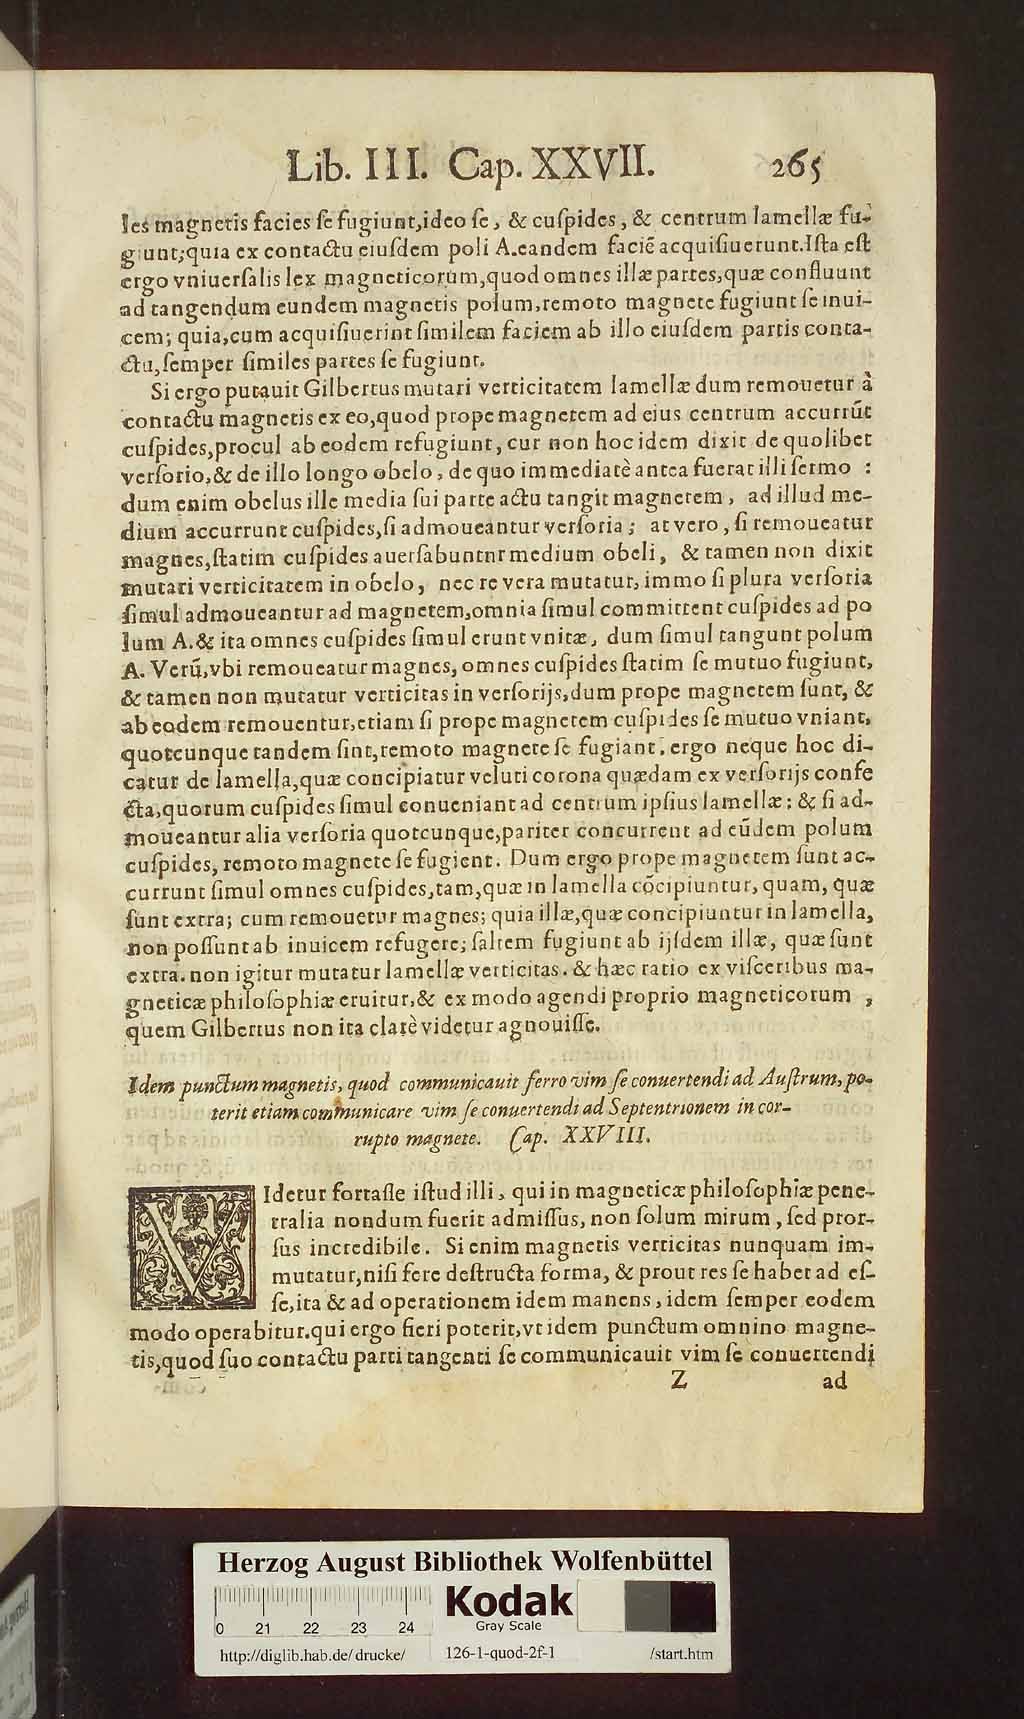 Lib. III. Cap. XXVII. 265
les magnetis facies ſe fugiunt,ideo ſe, & cuſpides, & centrum lamellæ fu-
giunt;quia ex contactu eiuſdem poli A.eandem faciē acquiſiuerunt.Iſta eſt
ergo vniuerſalis lex magneticorum,quod omnes illæ partes,quæ confluunt
ad tangendum eundem magnetis polum,remoto magnete fugiunt ſe inui-
cem; quia,cum acquiſiuerint ſimilem faciem ab illo eiuſdem partis conta-
ctu,ſemper ſimiles partes ſe fugiunt.
Si ergo putauit Gilbertus mutari verticitatem lamellæ dum remouetur à
contactu magnetis ex eo,quod prope magnetem ad eius centrum accurrūt
cuſpides,procul ab eodem refugiunt, cur non hoc idem dixit de quolibet
verſorio,& de illo longo obelo, de quo immediatè antea fuerat illi ſermo :
dum enim obelus ille media ſui parte actu tangit magnetem, ad illud me-
dium accurrunt cuſpides,ſi admoueantur verſoria; at vero, ſi remoueatur
magnes,ſtatim cuſpides auerſabuntnr medium obeli, & tamen non dixit
mutari verticitatem in obelo, nec re vera mutatur, immo ſi plura verſoria
ſimul admoueantur ad magnetem,omnia ſimul committent cuſpides ad po
lum A.& ita omnes cuſpides ſimul erunt vnitæ, dum ſimul tangunt polum
A. Verū,vbi remoueatur magnes, omnes cuſpides ſtatim ſe mutuo fugiunt,
& tamen non mutatur verticitas in verſorijs,dum prope magnetem ſunt, &
ab eodem remouentur,etiam ſi prope magnetem cuſpides ſe mutuo vniant,
quotcunque tandem ſint,remoto magnete ſe fugiant. ergo neque hoc di-
catur de lamella,quæ concipiatur veluti corona quædam ex verſorijs confe
cta,quorum cuſpides ſimul conueniant ad centrum ipſius lamellæ: & ſi ad-
moueantur alia verſoria quotcunque,pariter concurrent ad eūdem polum
cuſpides, remoto magnete ſe fugient. Dum ergo prope magnetem ſunt ac-
currunt ſimul omnes cuſpides,tam,quæ in lamella cōcipiuntur, quam, quæ
ſunt extra; cum remouetur magnes; quia illæ,quæ concipiuntur in lamella,
non poſſunt ab inuicem refugere; ſaltem fugiunt ab ijſdem illæ, quæ ſunt
extra. non igitur mutatur lamellæ verticitas. & hæc ratio ex viſceribus ma-
gneticæ philoſophiæ eruitur,& ex modo agendi proprio magneticorum ,
quem Gilbertus non ita clarè videtur agnouiſſe.
Idem punctum magnetis, quod communicauit ferro vim ſe conuertendi ad Auſtrum, po-
terit etiam communicare vim ſe conuertendi ad Septentrionem in cor-
rupto magnete. Cap. XXVIII.
VIdetur fortaſſe iſtud illi, qui in magneticæ philoſophiæ pene-
tralia nondum fuerit admiſſus, non ſolum mirum, ſed pror-
ſus incredibile. Si enim magnetis verticitas nunquam im-
mutatur,niſi fere deſtructa forma, & prout res ſe habet ad eſ-
ſe,ita & ad operationem idem manens, idem ſemper eodem
modo operabitur.qui ergo fieri poterit,vt idem punctum omnino magne-
tis,quod ſuo contactu parti tangenti ſe communicauit vim ſe conuertendi
Z ad
Herzog August Bibliothek Wolfenbüttel
0 21 22 23 24
Kodak
Gray Scale
http://diglib.hab.de/drucke/ 126-1-quod-2f-1 /start.htm